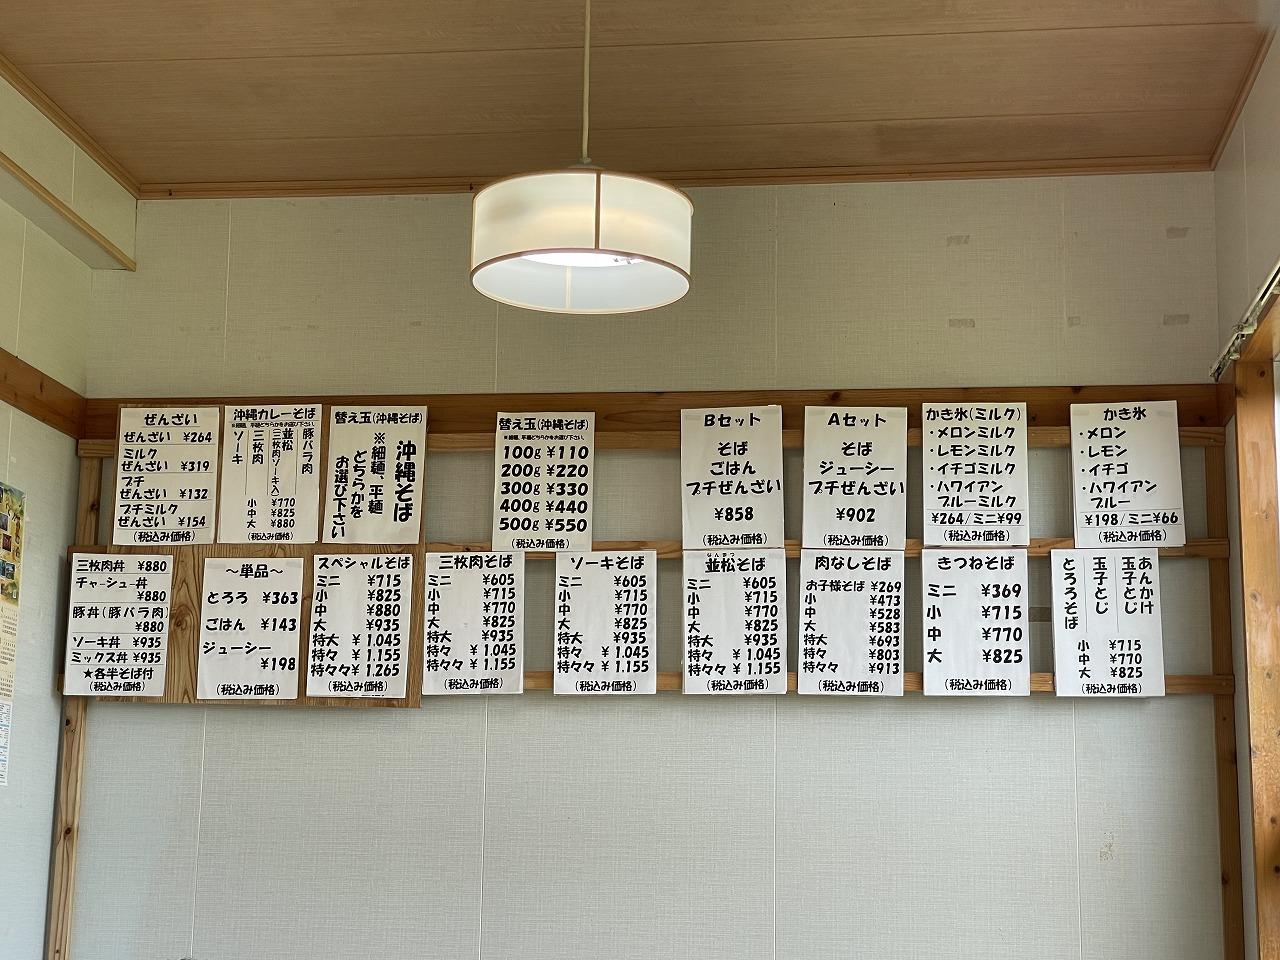 ぜんざい
ぜんざい ¥264
ミルク
ぜんざい ¥319
プチ
ぜんざい ¥132
プチミルク
ぜんざい ¥154
(税込み価格)
沖縄カレーそば
※細麺、平麺どちらかをお選び下さい。
豚バラ肉
並松
(三枚肉ソーキ入)
三枚肉
ソーキ
小 ¥770
中 ¥825
大 ¥880
(税込み価格)
替え玉(沖縄そば)
沖縄そば
※細麺、平麺
どちらかを
お選び下さい
替え玉(沖縄そば)
※細麺、平麺どちらかをお選び下さい。
100g ¥110
200g ¥220
300g ¥330
400g ¥440
500g ¥550
(税込み価格)
Bセット
そば
ごはん
プチぜんざい
¥858
(税込み価格)
Aセット
そば
ジューシー
プチぜんざい
¥902
(税込み価格)
かき氷(ミルク)
・メロンミルク
・レモンミルク
・イチゴミルク
・ハワイアン
ブルーミルク
¥264/ミニ¥99
(税込み価格)
かき氷
・メロン
・レモン
・イチゴ
・ハワイアン
ブルー
¥198/ミニ¥66
(税込み価格)
三枚肉丼 ¥880
チャーシュー丼
¥880
豚丼(豚バラ肉)
¥880
ソーキ丼 ¥935
ミックス丼 ¥935
★各半そば付
(税込み価格)
～単品～
とろろ ¥363
ごはん ¥143
ジューシー
¥198
(税込み価格)
スペシャルそば
ミニ ¥715
小 ¥825
中 ¥880
大 ¥935
特大 ¥1.045
特々 ¥1.155
特々々 ¥1.265
(税込み価格)
三枚肉そば
ミニ ¥605
小 ¥715
中 ¥770
大 ¥825
特大 ¥935
特々 ¥1.045
特々々 ¥1.155
(税込み価格)
ソーキそば
ミニ ¥605
小 ¥715
中 ¥770
大 ¥825
特大 ¥935
特々 ¥1.045
特々々 ¥1.155
(税込み価格)
並松そば
ミニ ¥605
小 ¥715
中 ¥770
大 ¥825
特大 ¥935
特々 ¥1.045
特々々 ¥1.155
(税込み価格)
肉なしそば
お子様そば ¥269
小 ¥473
中 ¥528
大 ¥583
特大 ¥693
特々 ¥803
特々々 ¥913
(税込み価格)
きつねそば
ミニ ¥369
小 ¥715
中 ¥770
大 ¥825
(税込み価格)
あんかけ
玉子とじ
玉子とじ
とろろそば
小 ¥715
中 ¥770
大 ¥825
(税込み価格)